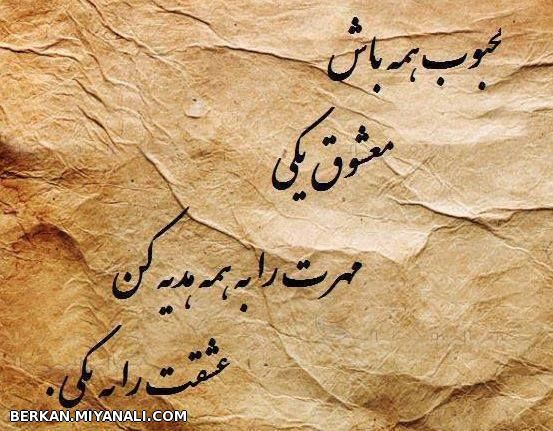 محبوب همه باش
معشوق یکی
مهرت را به همه هدیه کن
عشقت را به یکی.
BERKAN.MIYANALI.COM